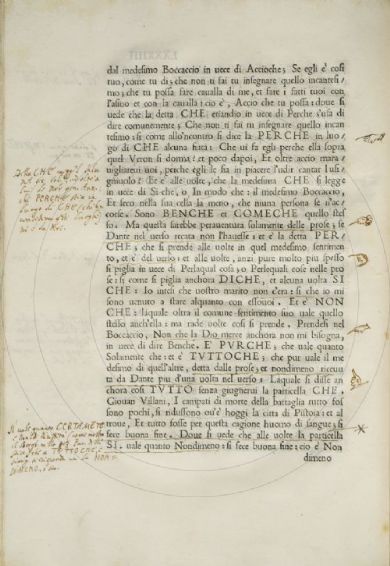 dal medesimo Boccaccio in uece di Accioche; Se egli è cosi
tuo, come tu di; che non ti fai tu insegnare quello incantesi/
mo; che tu possa fare caualla di me, et fare i fatti tuoi con
l'asino et con la caualla: cio è, Accio che tu possa: doue si
uede che la detta CHE etiandio in uece di Perche s'usa di
dire comunemente; Che non ti fai tu insegnare quello incan
tesimo: si come allo'ncontro si dice la PERCHE in luo/
go di CHE alcuna fiata; Che ui fa egli perche ella sopra
quel Veron si dorma: et poco dapoi, Et oltre accio mara/
uigliateui uoi, perche egli le sia in piacere l'udir cantar l'us/
gniuolo: Et è alle uolte, che la medesima CHE si legge
in uece di Si che, o In modo che: il medesimo Boccaccio,
Et seco nella sua cella la meno, che niuna persona se n'ac/
corse. Sono BENCHE et COMECHE quello stes/
so. Ma questa sarebbe perauentura solamente delle prose; se
Dante nel uerso recata non l'hauesse: et è la detta PER
CHE; che si prende alle uolte in quel medesimo sentimen
to, et è del uerso; et alle uolte, anzi pure molto piu spesso
si piglia in uece di Perlaqual cosa, o Perlequali cose nelle pro
se: si come si piglia anchora DICHE, et alcuna uolta SI
CHE: Io intesi che uostro marito non c'era: si che io mi
sono uenuto a stare alquanto con essouoi. Et è NON
CHE: laquale oltra il comune sentimento suo uale quello
stesso anch'ella: ma rade uolte cosi si prende. Prendesi nel
Boccaccio, Non che la Dio merce anchora non mi bisogna;
in uece di dire Benche. E PVRCHE; che uale quanto
Solamente che: et è TVTTOCHE; che pur uale il me
desimo di quell'altre, detta dalle prose; et nondimeno riceuu
ta da Dante piu d'una uolta nel uerso: Laquale si disse an
chora cosi TVTTO senza giugnerui la particella CHE.
Giouan Villani, I campati di morte della battaglia tutto fos
sono pochi, si ridussono ou'è hoggi la citta di Pistoia: et al
troue, Et tutto fosse per questa cagione huomo di sangue; si
fece buona fine. Doue si uede che alle uolte la particella
SI. uale quanto Nondimeno: si fece buona fine: cio è Non
dimeno